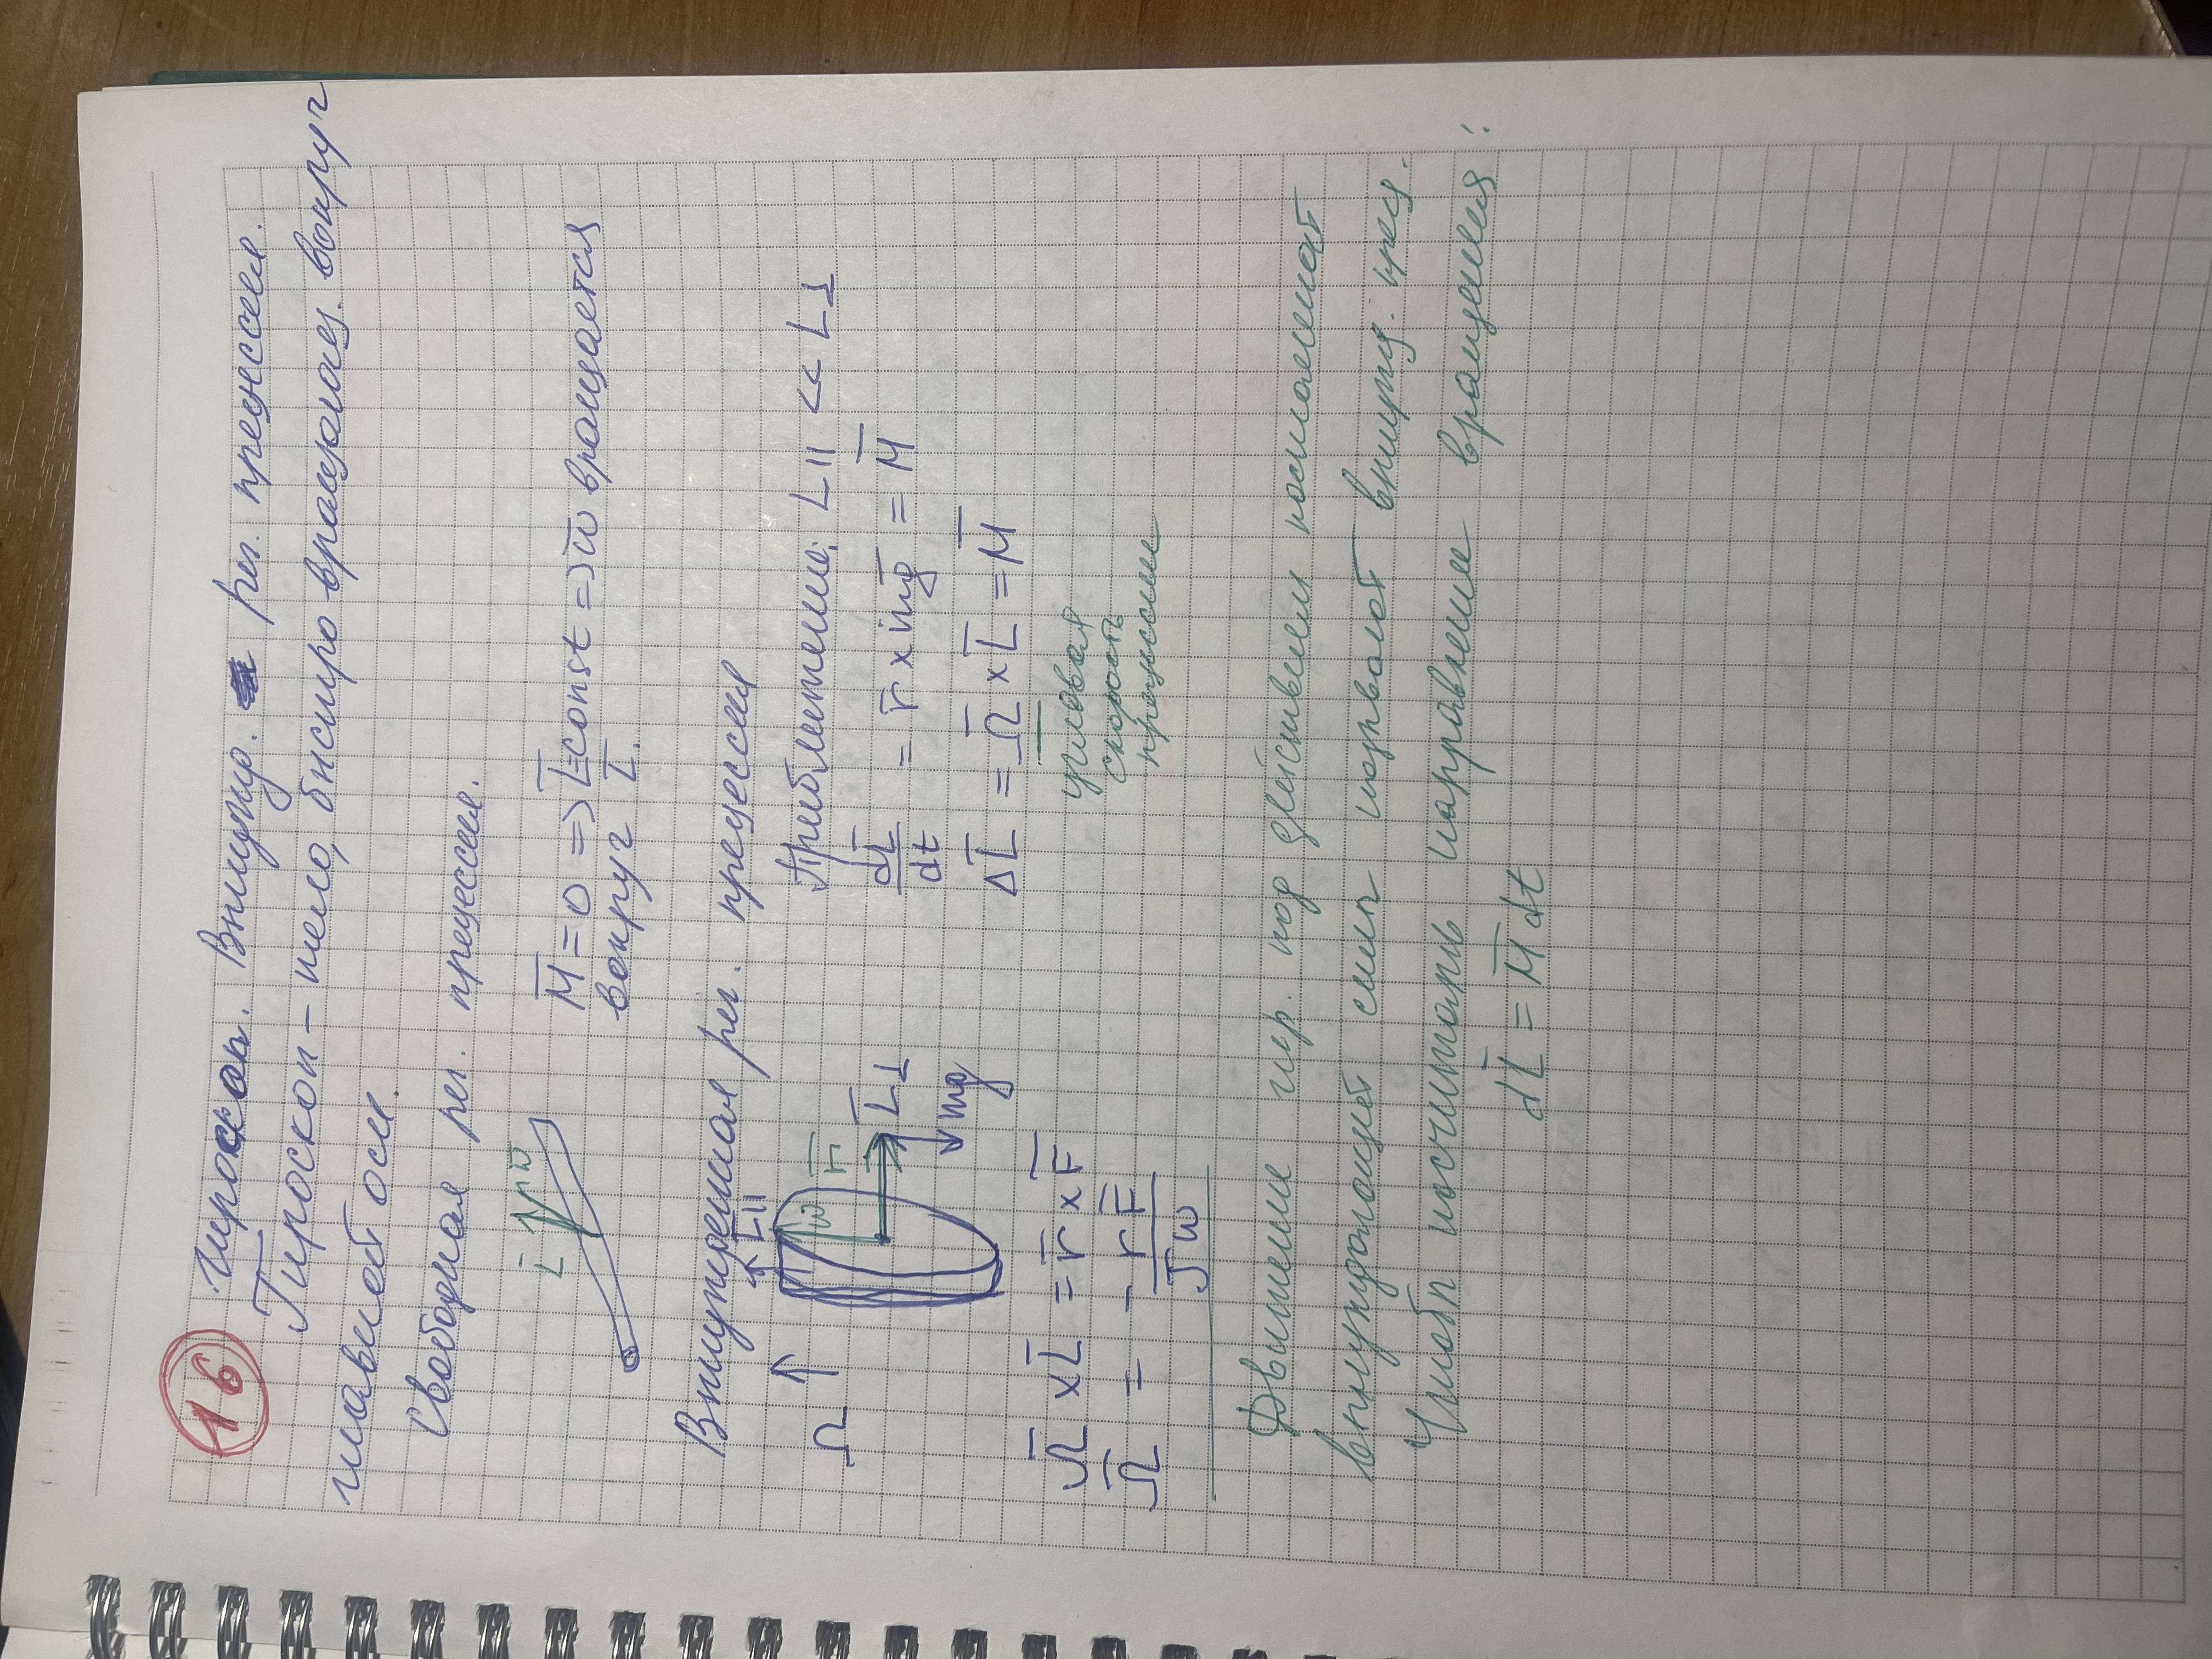 16 Гироскоп. Вынужд. рег. прецессия.
Гироскоп – тело, быстро вращающ. вокруг
главной оси.
Свободная рег. прецессия.
L̄ ω̄
M̄ = 0 => L̄=const => ω̄ вращается
вокруг L̄.
Вынужденная рег. прецессия
L̄||
Ω ω r̄ L̄⊥
mg
Приближение: L|| << L⊥
dL̄/dt = r̄ × mḡ = M̄
ΔL̄ = Ω̄ × L̄ = M̄
угловая
скорость
прецессии
Ω̄ × L̄ = r̄ × F̄
Ω̄ = - rF̄/Jω
Движение гир. под действием постоянной
вынуждающей силы называют вынужд. прец.
Чтобы посчитать направление вращения:
dL̄ = M̄dt